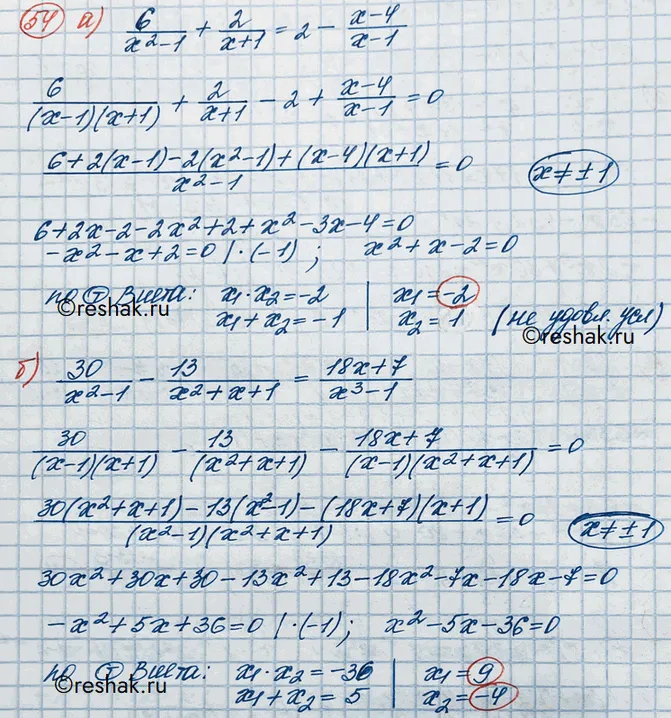 54 а) 6/(x²-1) + 2/(x+1) = 2 - (x-4)/(x-1)
6/((x-1)(x+1)) + 2/(x+1) - 2 + (x-4)/(x-1) = 0
(6+2(x-1)-2(x²-1)+(x-4)(x+1))/(x²-1) = 0   x≠±1
6+2x-2-2x²+2+x²-3x-4=0
-x²-x+2=0 |·(-1) ;   x²+x-2=0
по Т Виета: x₁·x₂=-2 | x₁=-2
x₁+x₂=-1 | x₂=1 (не удовл. усл)
©reshak.ru
©reshak.ru
б) 30/(x²-1) - 13/(x²+x+1) = (18x+7)/(x³-1)
30/((x-1)(x+1)) - 13/(x²+x+1) - (18x+7)/((x-1)(x²+x+1)) = 0
(30(x²+x+1)-13(x²-1)-(18x+7)(x+1))/((x²-1)(x²+x+1)) = 0   x≠±1
30x²+30x+30-13x²+13-18x²-7x-18x-7=0
-x²+5x+36=0 |·(-1);   x²-5x-36=0
по Т Виета: x₁·x₂=-36 | x₁=9
x₁+x₂=5 | x₂=-4
©reshak.ru
©reshak.ru